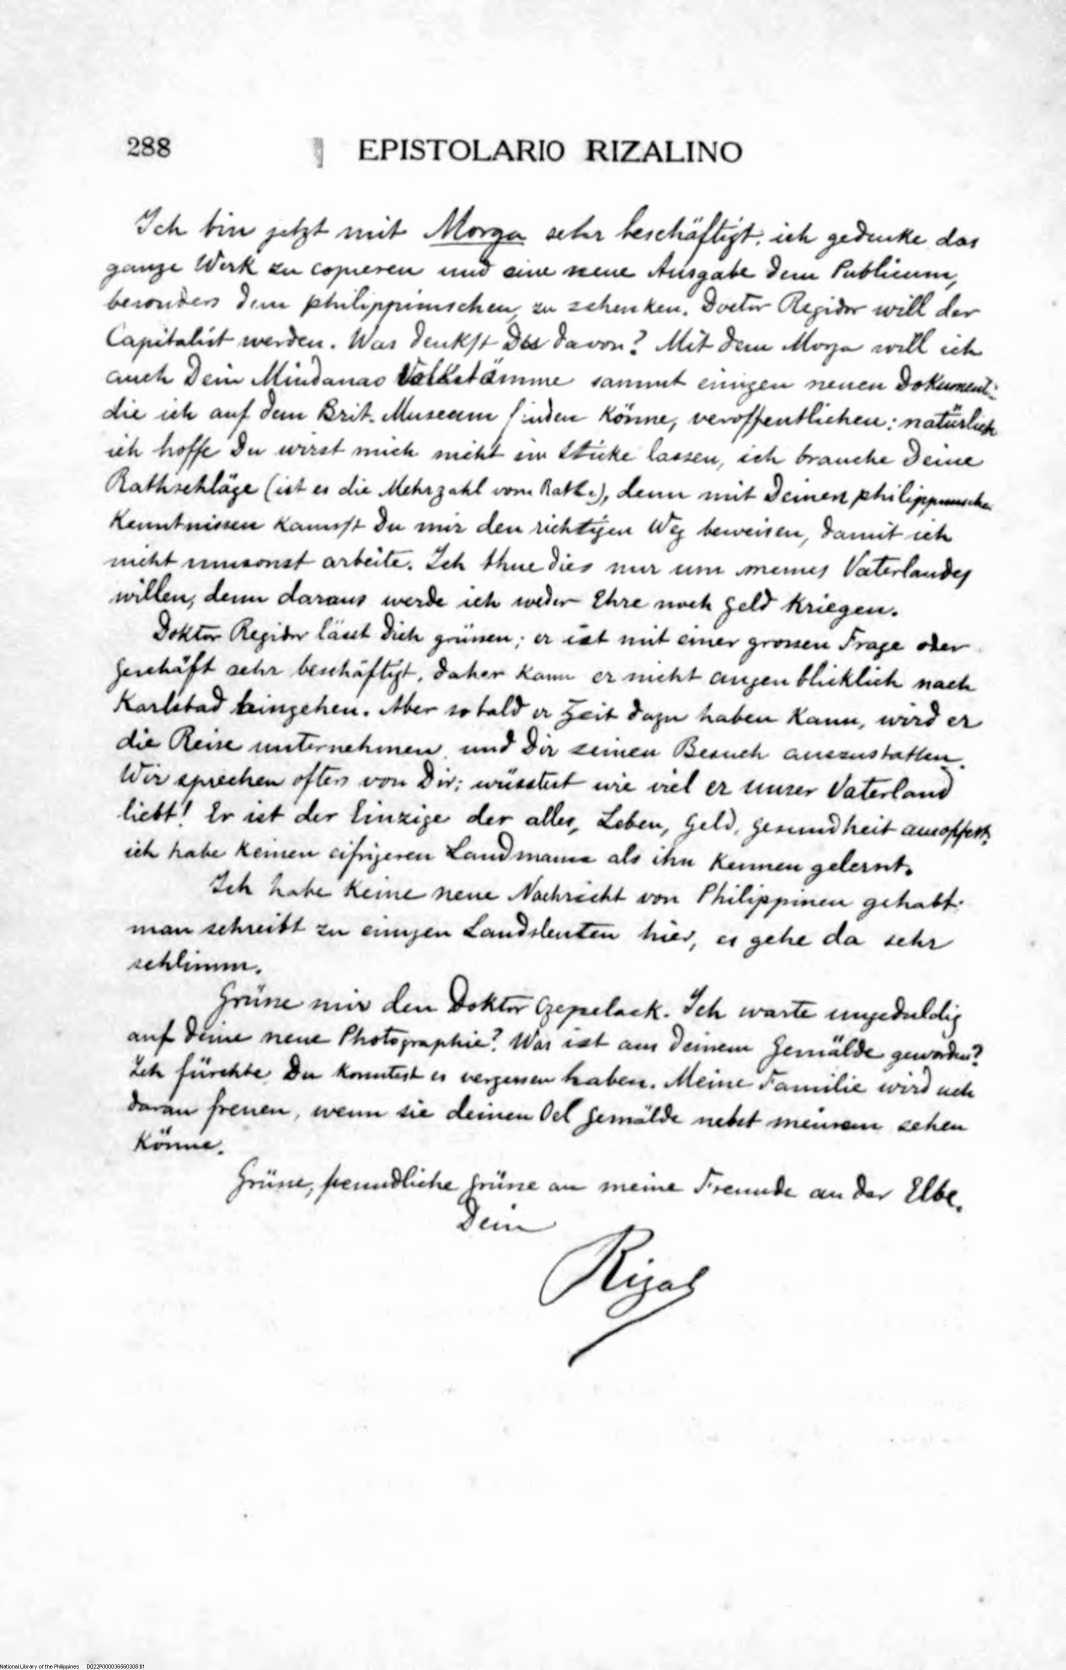 288
EPISTOLARIO RIZALINO
Ich bin jetzt mit Morga sehr beschäftigt. ich gedenke das
ganze Werk zu copieren und eine neue Ausgabe dem Publicum,
besonders dem philippinischen, zu schenken. Doctor Regidor will der
Capitalist werden. Was denkst Du davon? Mit dem Morga will ich
auch Dein Mindanao Volkstämme sammt einigen neuen Dokument-
die ich auf dem Brit. Museum finden könne, veroffentlichen: natürlich
ich hoffe Du wirst mich nicht im Sticke lassen, ich brauche Deine
Rathschläge (ist es die Mehrzahl vom Rath?), denn mit Deinen philippinischen
Kenntnissen kannst Du mir den richtigen Weg beweisen, damit ich
nicht umsonst arbeite. Ich thue dies nur um meines Vaterlandes
willen, denn daraus werde ich weder Ehre noch Geld kriegen.
Doktor Regidor lässt Dich grüssen; er ist mit einer grossen Frage oder
Geschäft sehr beschäftigt, daher kann er nicht augenblicklich nach
Karlsbad hingehen. Aber sobald er Zeit dazu haben kann, wird er
die Reise unternehmen und Dir seinen Besuch auszustatten.
Wir sprechen ofters von Dir; wüsstest wie viel er unser Vaterland
liebt! Er ist der Einzige der alles, Leben, Geld, Gesundheit ausopfert;
ich habe keinen eifrigeren Landmann als ihn kennen gelernt.
Ich habe keine neue Nachricht von Philippinen gehabt:
man schreibt zu einigen Landsleuten hier, es gehe da sehr
schlimm.
Grüsse mir den Doktor Czepelack. Ich warte ungeduldig
auf deine neue Photographie? Was ist aus Deinem Gemälde geworden?
Ich fürchte Du konntest es vergessen haben. Meine Familie wird sich
daran freuen, wenn sie deinen Oel Gemälde nebst meinem sehen
könne.
Grüsse, freundliche Grüsse an meine Freunde an der Elbe.
Dein
Rizal
National Library of the Philippines